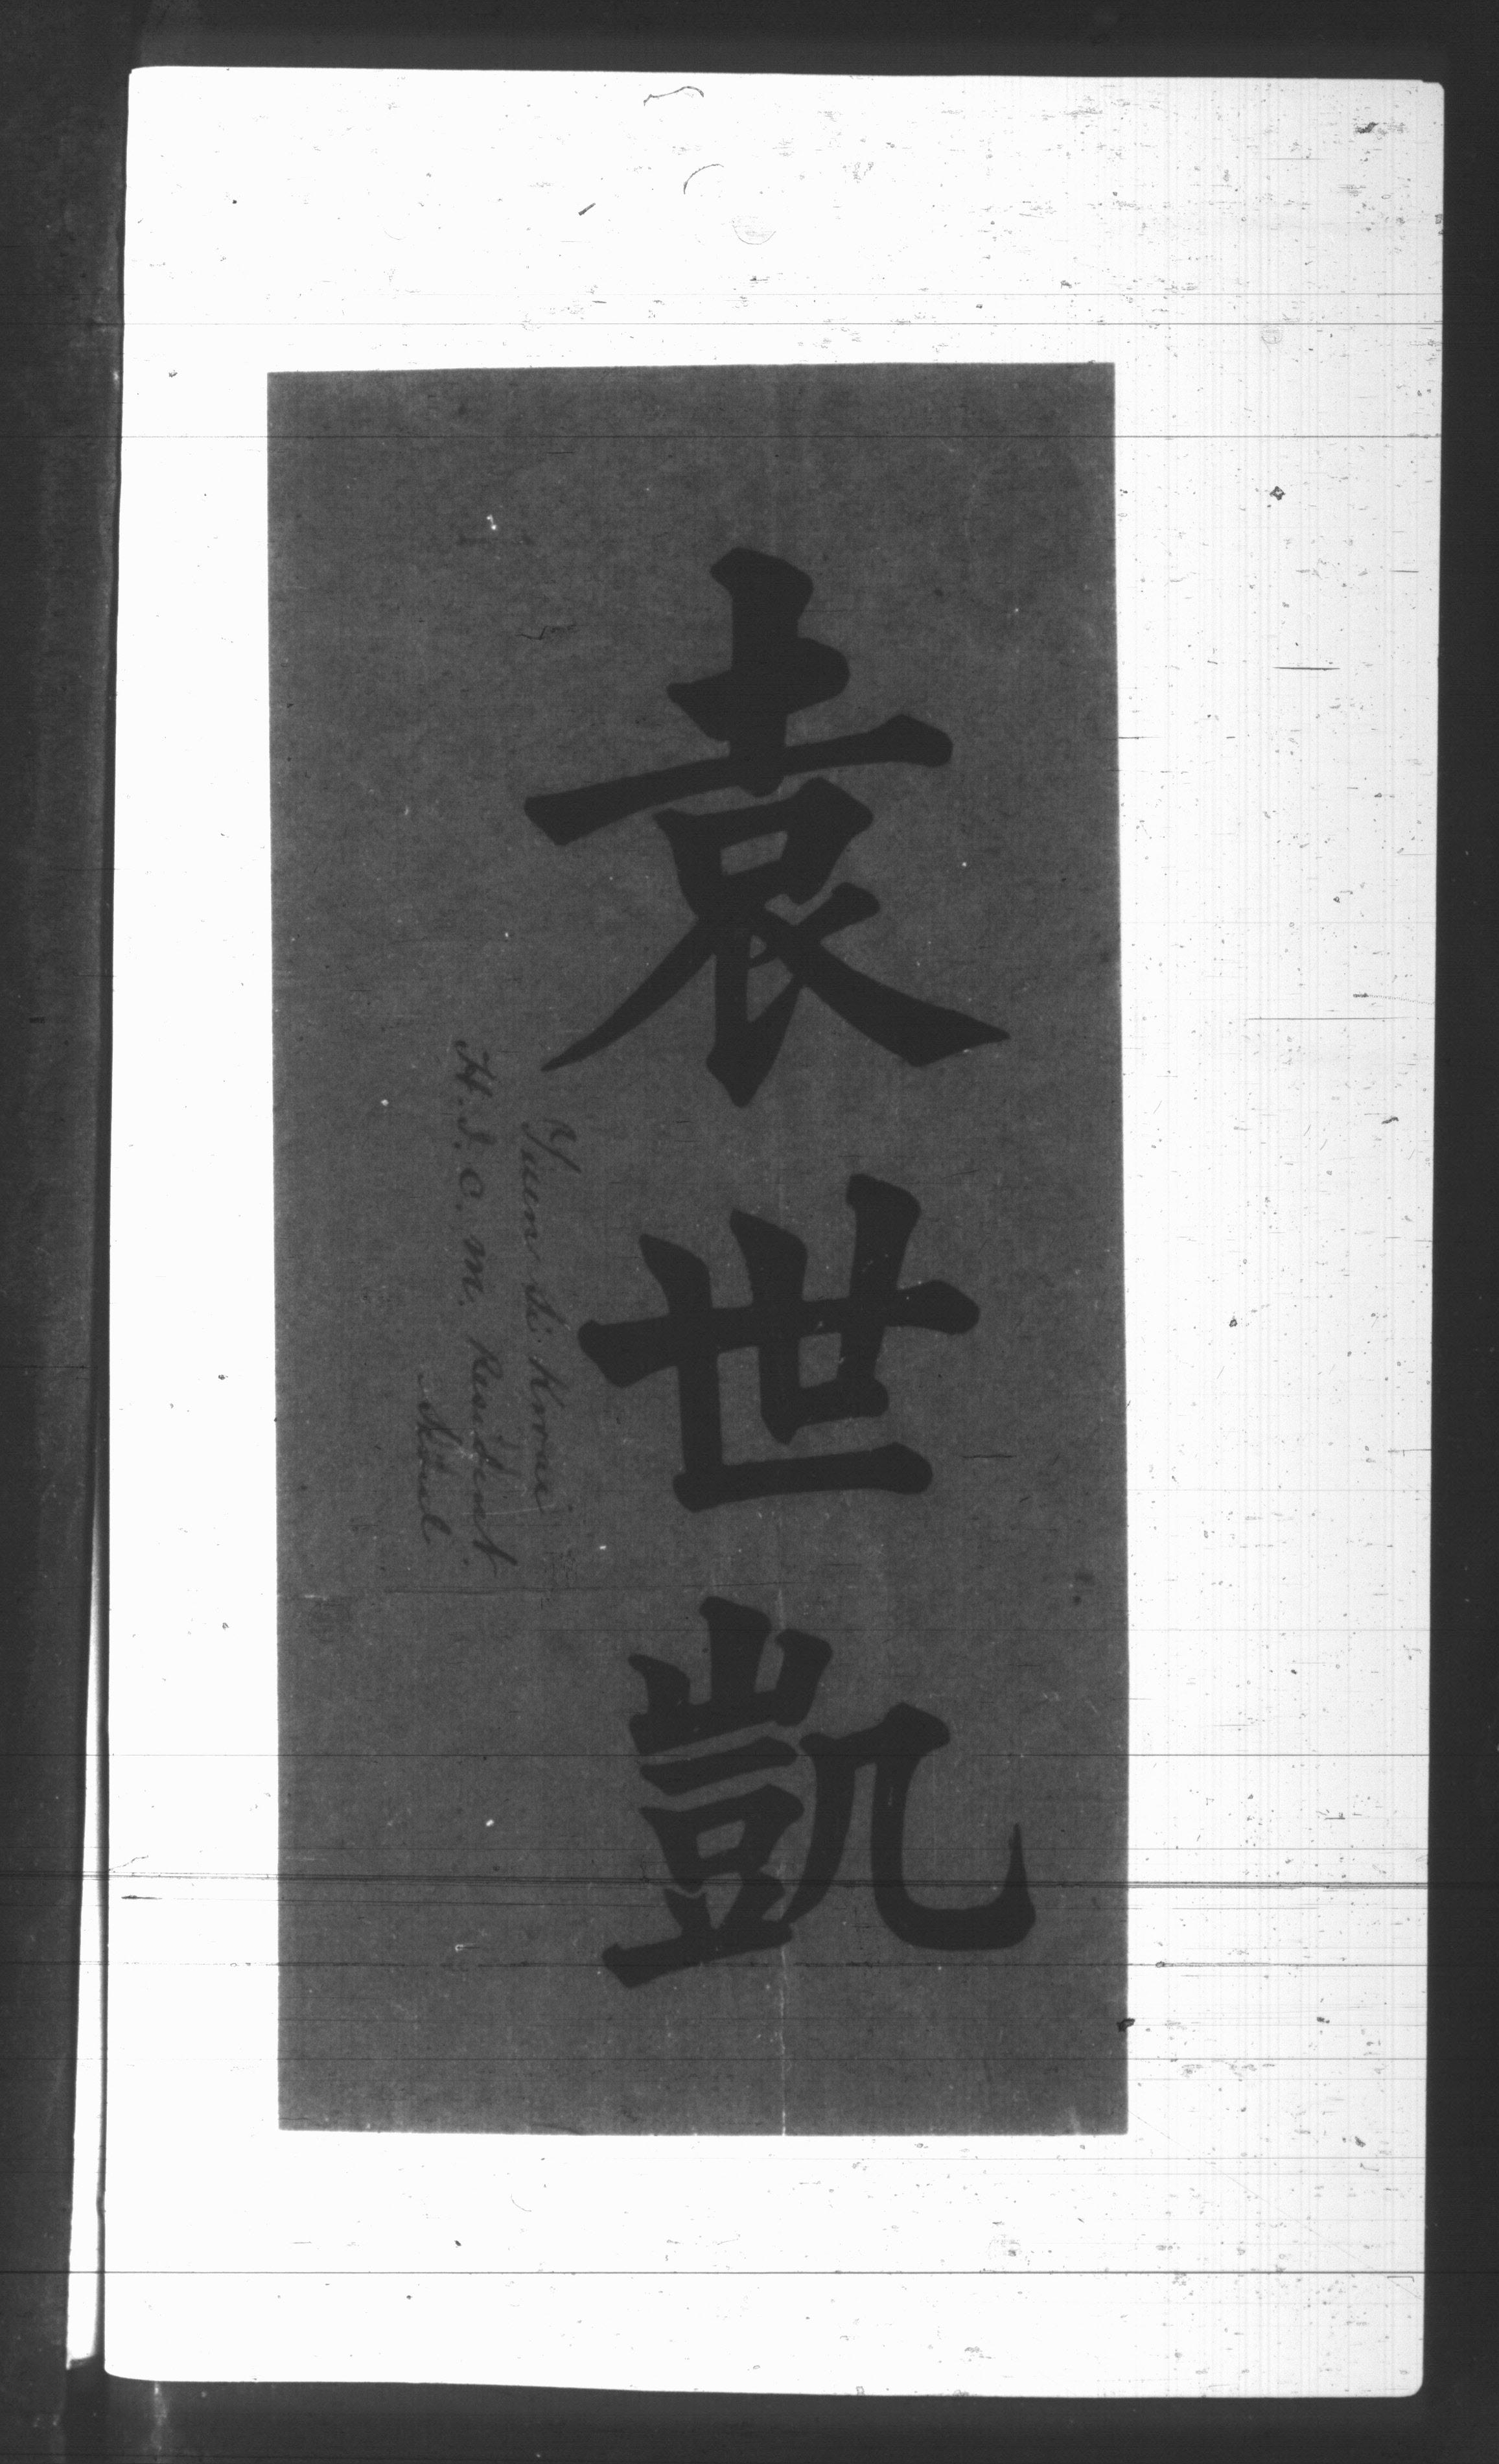 袁世凱
Yuen Si Kwai
H. I. C. M. Resident
Söul